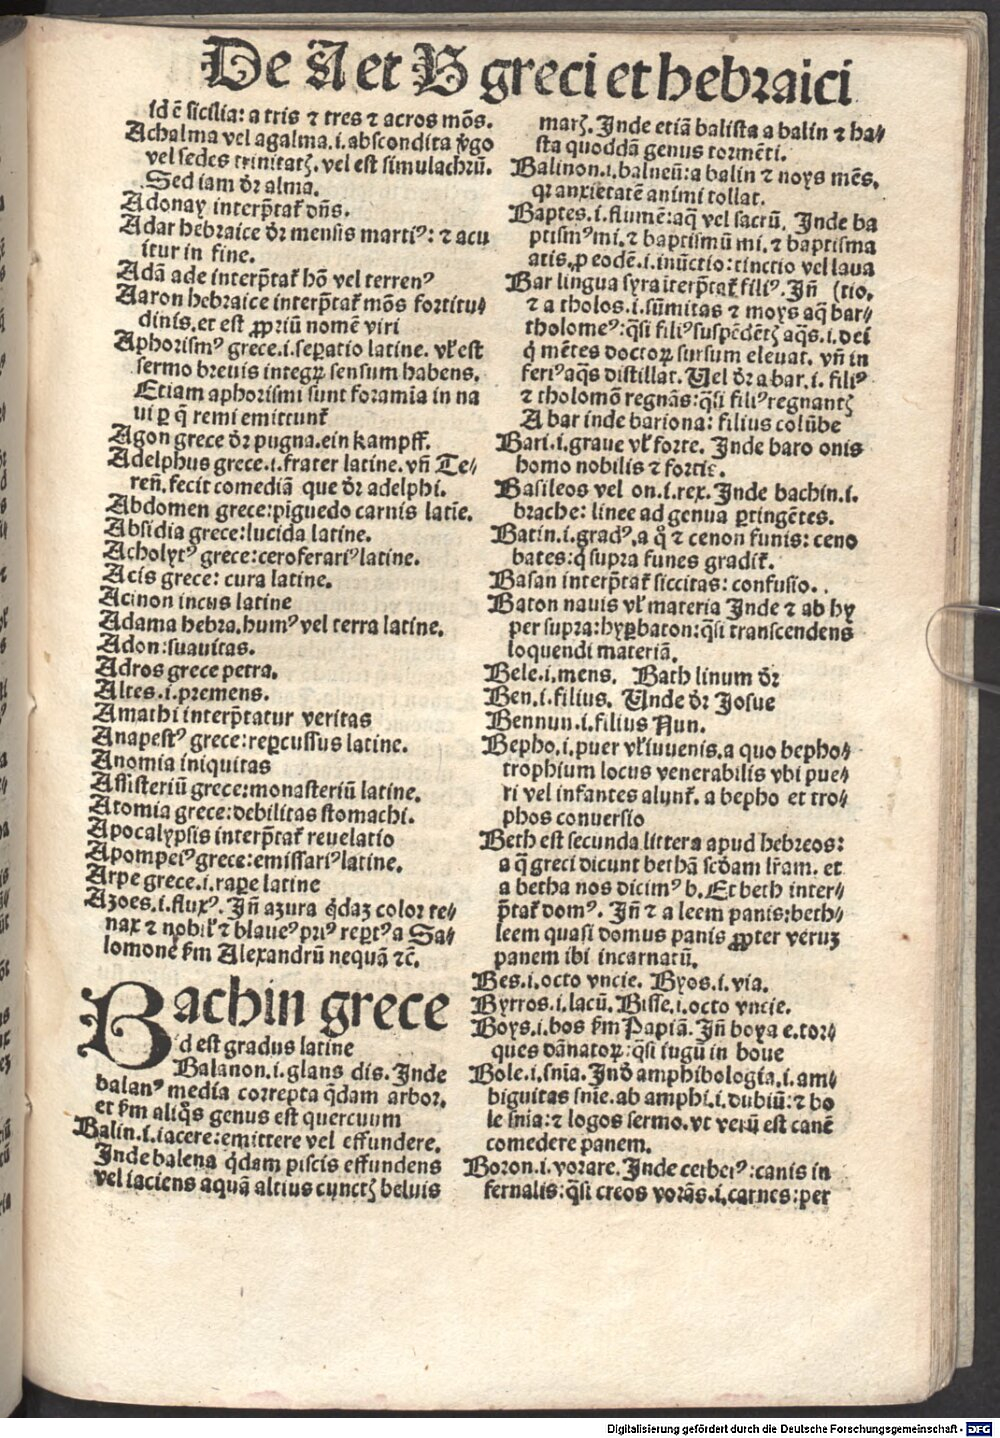 De A et B greci et hebraici
id ē sicilia: a tris ⁊ tres ⁊ acros mōs.
Achalma vel agalma.i.abscondita v̓go
vel sedes trinitatꝫ. vel est simulachrū.
Sed iam dr̄ alma.
Adonay interp̄tat̄ dn̄s.
Adar hebraice dr̄ mensis marti⁹: ⁊ acu
itur in fine.
Adā ade interp̄tat̄ hō vel terren⁹
Aaron hebraice interp̄tat̄ mōs fortitu⸗
dinis.et est ꝓpriū nomē viri
Aphorism⁹ grece.i.seꝑatio latine. vl̄ est
sermo breuis integꝝ sensum habens.
Etiam aphorismi sunt foramīa in na
ui ꝑ q̄ remi emittunt̄
Agon grece dr̄ pugna.ein kampff.
Adelphus grece.i.frater latine. vn̄ Te⸗
ren̄.fecit comediā que dr̄ adelphi.
Abdomen grece:piguedo carnis latīe.
Absidia grece:lucida latine.
Acholyt⁹ grece:ceroferari⁹ latine.
Acis grece: cura latine.
Acinon incus latine
Adama hebra.hum⁹ vel terra latine.
Adon:suauitas.
Adros grece petra.
Altes.i.premens.
Amathi interp̄tatur veritas
Anapest⁹ grece:reꝑcussus latine.
Anomia iniquitas
Assisteriū grece:monasteriū latine.
Atomia grece:debilitas stomachi.
Apocalypsis interp̄tat̄ reuelatio
Apompei⁹ grece:emissari⁹ latine.
Arpe grece.i.raꝑe latine
Azoes.i.flux⁹. Jn̄ azura q̄daꝫ color te⸗
nax ⁊ nobil̄ ⁊ blaue⁹ pri⁹ reꝑt⁹ a Sa⸗
lomone ẜm Alexandrū nequā ⁊c̄.
Bachin grece
d est gradus latine
Balanon.i.glans dis. Jnde
balan⁹ media correpta q̄dam arbor.
et ẜm aliq̊s genus est quercuum
Balin.i.iacere:emittere vel effundere.
Jnde balena q̄dam piscis effundens
vel iaciens aquā altius cunctꝫ beluis
marꝫ. Jnde etiā balista a balin ⁊ ha⸗
sta quoddā genus tormēti.
Balinon.i.balneū:a balin ⁊ noys mēs.
qꝛ anxietatē animi tollat.
Baptes.i.flumē:aq̄ vel sacrū. Jnde ba
ptism⁹ mi.⁊ baptismū mi.⁊ baptisma
atis.ꝓ eodē.i.inūctio:tinctio vel laua
Bar lingua syra iterp̄tat̄ fili⁹. Jn̄ (tio.
⁊ a tholos.i.sūmitas ⁊ moys aq̄ bar⸗
tholome⁹:q̄si fili⁹ suspēdētꝫ aq̄s.i.dei
q̇ mētes doctoꝝ sursum eleuat. vn̄ in
feri⁹ aq̄s distillat. Uel dr̄ a bar.i.fili⁹
⁊ tholomō regnās:q̄si fili⁹ regnantꝫ
A bar inde bariona: filius colūbe
Bari.i.graue vl̄ forte. Jnde baro onis
homo nobilis ⁊ fortis.
Basileos vel on.i.rex. Jnde bachin.i.
brache: linee ad genua ꝑtingētes.
Batin.i.grad⁹.a q̊ ⁊ cenon funis: ceno
bates:q̇ supra funes gradit̄.
Basan interp̄tat̄ siccitas: confusio.
Baton nauis vl̄ materia Jnde ⁊ ab hy
per supra:hyꝑbaton:q̄si transcendens
loquendi materiā.
Bele.i.mens. Bath linum dr̄
Ben.i.filius. Unde dr̄ Josue
Bennun.i.filius Nun.
Bepho.i.puer vl̄ iuuenis.a quo bepho⸗
trophium locus venerabilis vbi pue⸗
ri vel infantes alunt̄. a bepho et tro⸗
phos conuersio
Beth est secunda littera apud hebreos:
a q̄ greci dicunt bethā scd̄am lr̄am. et
a betha nos dicim⁹ b. Et beth inter⸗
p̄tat̄ dom⁹. Jn̄ ⁊ a leem panis:beth⸗
leem quasi domus panis ꝓpter veruꝫ
panem ibi incarnatū.
Bes.i.octo vncie. Byos.i.via.
Byrros.i.lacū. Bisse.i.octo vncie.
Boys.i.bos ẜm Papiā. Jn̄ boya e.tor⸗
ques dānatoꝝ:q̄si iugū in boue
Bole.i.sn̄ia. Jnd̄ amphibologia.i.am⸗
biguitas snīe.ab amphi.i.dubiū:⁊ bo
le sn̄ia:⁊ logos sermo.vt verū est canē
comedere panem.
Boron.i.vorare. Jnde cerber⁹:canis in
fernalis:q̄si creos vorās.i.carnes:per
Digitalisierung gefördert durch die Deutsche Forschungsgemeinschaft - DFG